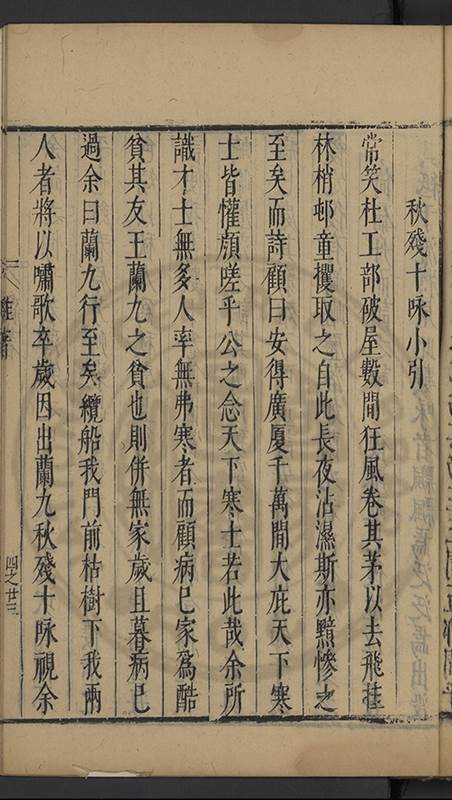 秋殘十咏小引
常笑杜工部破屋數間狂風卷其茅以去飛挂
林梢邨童攫取之自此長夜沾濕斯亦黯慘之
至矣而詩顧曰安得廣厦千萬間大庇天下寒
士皆懽顔嗟乎公之念天下寒士若此哉余所
識才士無多人率無弗寒者而顧病已家爲酷
貧其友王蘭九之貧也則併無家歲且暮病已
過余曰蘭九行至矣纜船我門前枯樹下我兩
人者將以嘯歌卒歲因出蘭九秋殘十咏視余
雜著
四之廿三